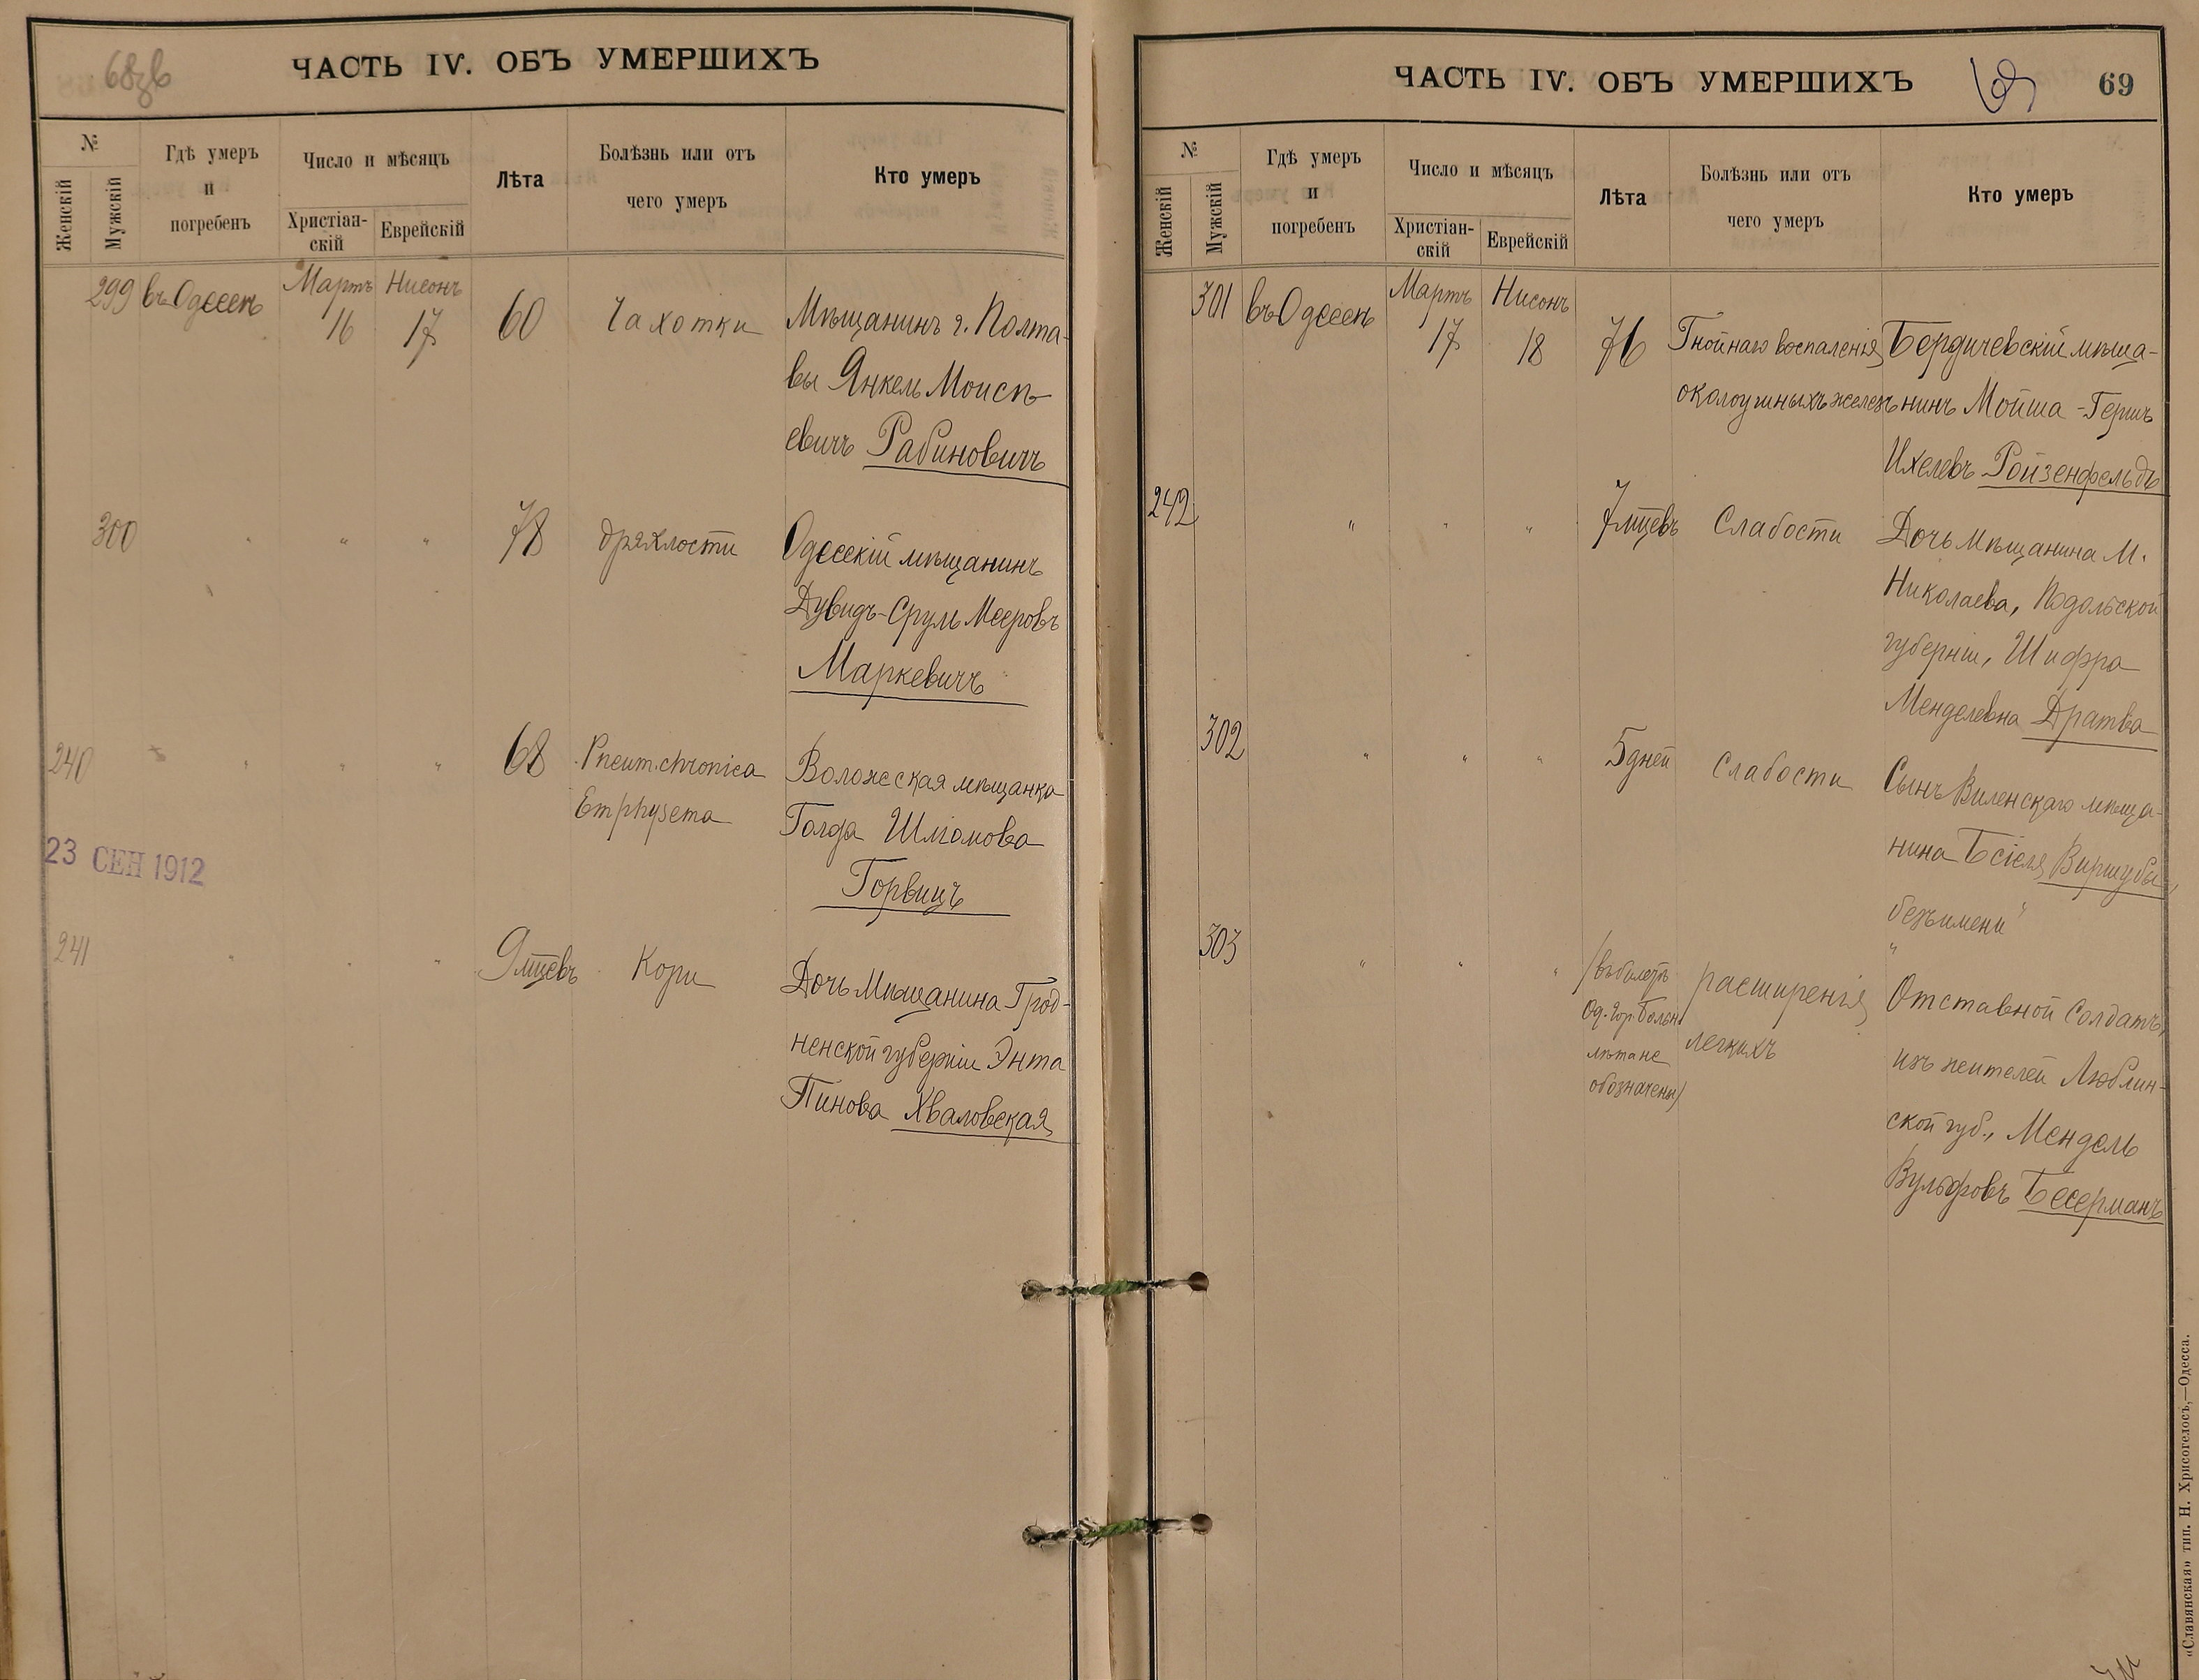 68зв
ЧАСТЬ IV. ОБЪ УМЕРШИХЪ
№
Женскій
Мужскій
Гдѣ умеръ
и
погребенъ
Число и мѣсяцъ
Христіан-
скій
Еврейскій
Лѣта
Болѣзнь или отъ
чего умеръ
Кто умеръ
299 въ Одессѣ Мартъ 16 Нисонъ 17 60 Чахотки Мѣщанинъ г. Полта-
вы Янкель Моисѣ-
евичъ Рабиновичъ
300 " " " 78 дряхлости Одесскій мѣщанинъ
Дувидъ-Сруль Мееровъ
Маркевичъ
240 " " " 68 Pneum. chronica Воложеская мѣщанка
Emphysema Голда Шлiомова
Горвицъ
23 СЕН 1912
241 " " " 9 мцевъ Кори Дочь Мѣщанина Грод-
ненской губерніи Энта
Пинова Хваловская
ЧАСТЬ IV. ОБЪ УМЕРШИХЪ
69
69
№
Женскій
Мужскій
Гдѣ умеръ
и
погребенъ
Число и мѣсяцъ
Христіан-
скій
Еврейскій
Лѣта
Болѣзнь или отъ
чего умеръ
Кто умеръ
301 въ Одессѣ Мартъ 17 Нисонъ 18 76 Гнойнаго воспаленія Бердичевскій мѣща-
околоушныхъ железъ нинъ Мойша-Гершъ
Ихелевъ Ройзенфельдъ
242 " " " 7 мцевъ Слабости Дочь Мѣщанина М.
Николаева, Подольской
губерніи, Шифра
Менделевна Дратва
302 " " " 5 дней Слабости Сынъ Виленскаго мѣща-
нина Есіеля Виршубы
"безъ имени"
303 " " " /въ билетѣ расширенія Отставной Солдатъ,
Од. Гор. Больн. легкихъ изъ жителей Люблин-
лѣта не ской губ., Мендель
обозначены/ Вульфовъ Бесерманъ
«Славянская» тип. Н. Хрисогелосъ,—Одесса.